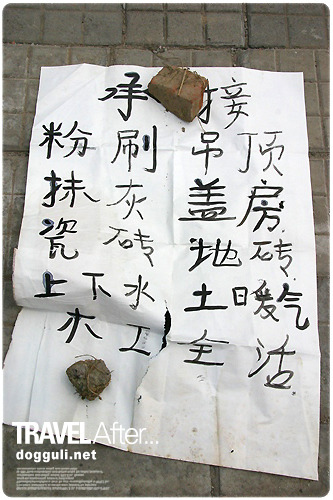 承接
粉刷 吊顶
抹灰 盖房
瓷砖 地砖
上下水 土暖气
木工 全活
TRAVEL After...
dogguli.net